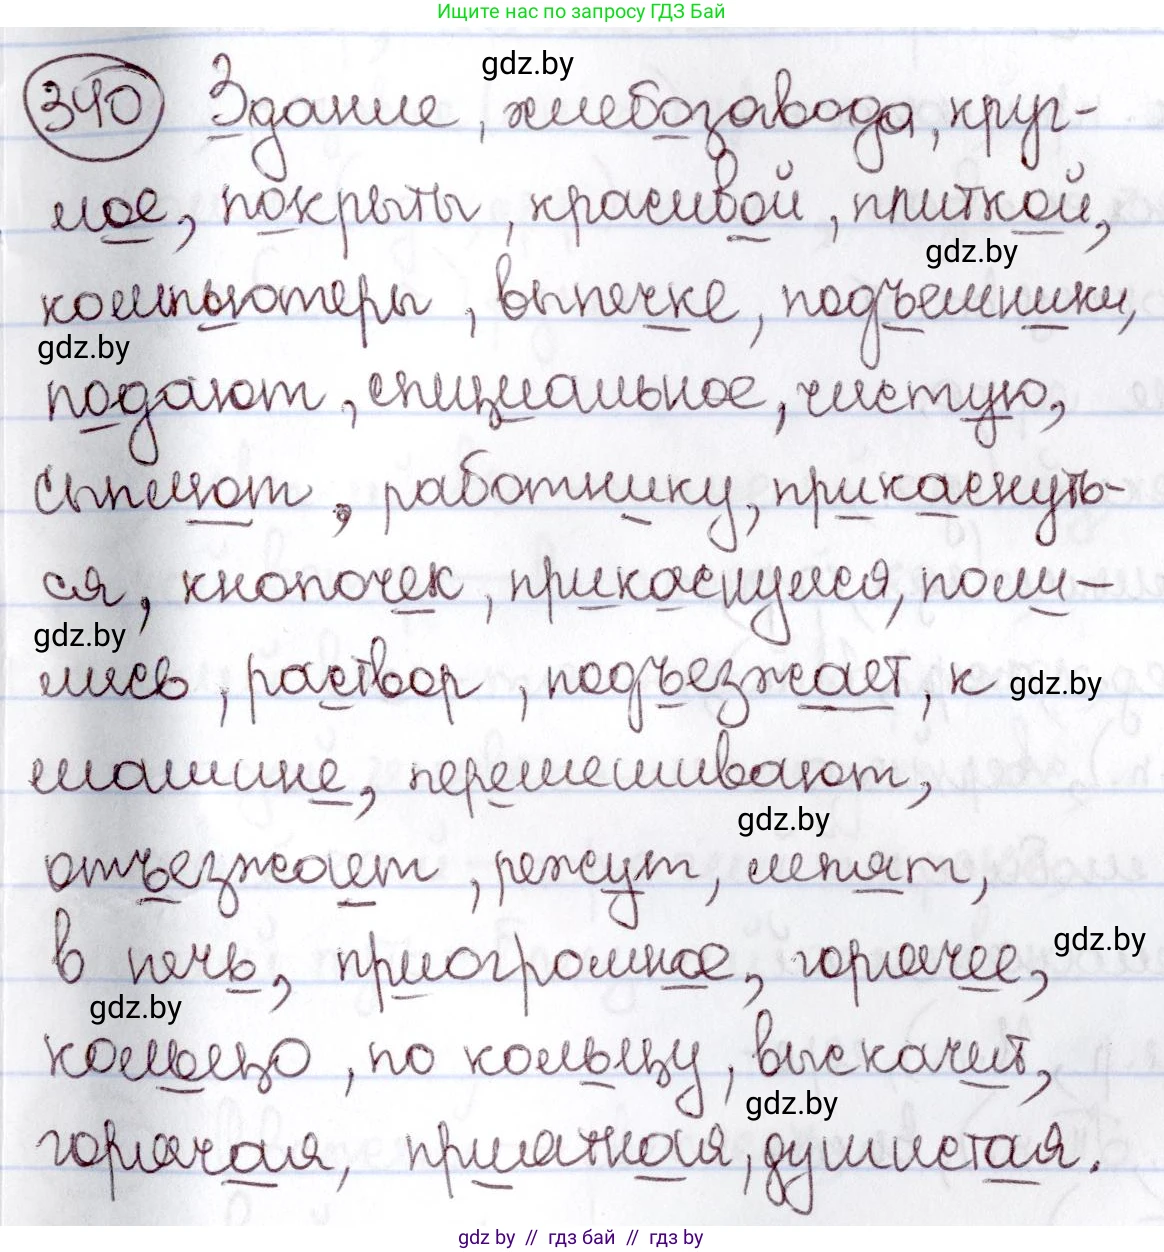 Ищите нас по запросу ГДЗ Бай
gdz.by
340 Здание, хлебозавода, круг-
лое, покрыты, красивой, плиткой,
gdz.by
компьютеры, выпечке, подъемники,
gdz.by
подают, специальное, чистую,
сыплют, работнику, прикаснуть-
ся, кнопочек, прикаснулися, поли-
gdz.by
лись, раствор, подъезжает, к
gdz.by
машине, перемешивают,
gdz.by
отъезжает, режут, лепят,
в печь, приогромное, горячее,
gdz.by
gdz.by
кольцо, по кольцу, выскачит,
gdz.by
горячая, приятная, душистая.
gdz.by // гдз бай // гдз by